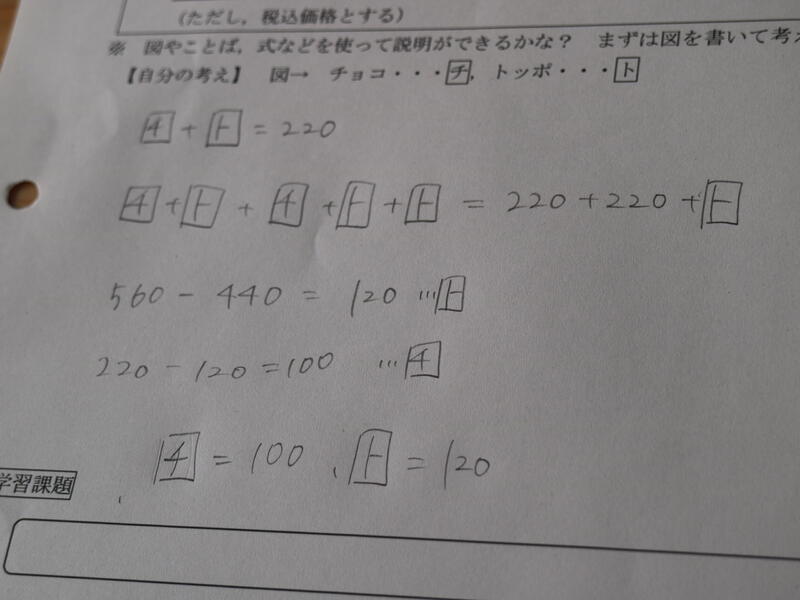 (ただし，税込価格とする)
※ 図やことば，式などを使って説明ができるかな？ まずは図を書いて考
【自分の考え】 図→ チョコ・・・チ，トッポ・・・ト
チ + ト = 220
チ + ト + チ + ト + ト = 220 + 220 + ト
560 - 440 = 120 …ト
220 - 120 = 100 …チ
チ = 100 、ト = 120
学習課題